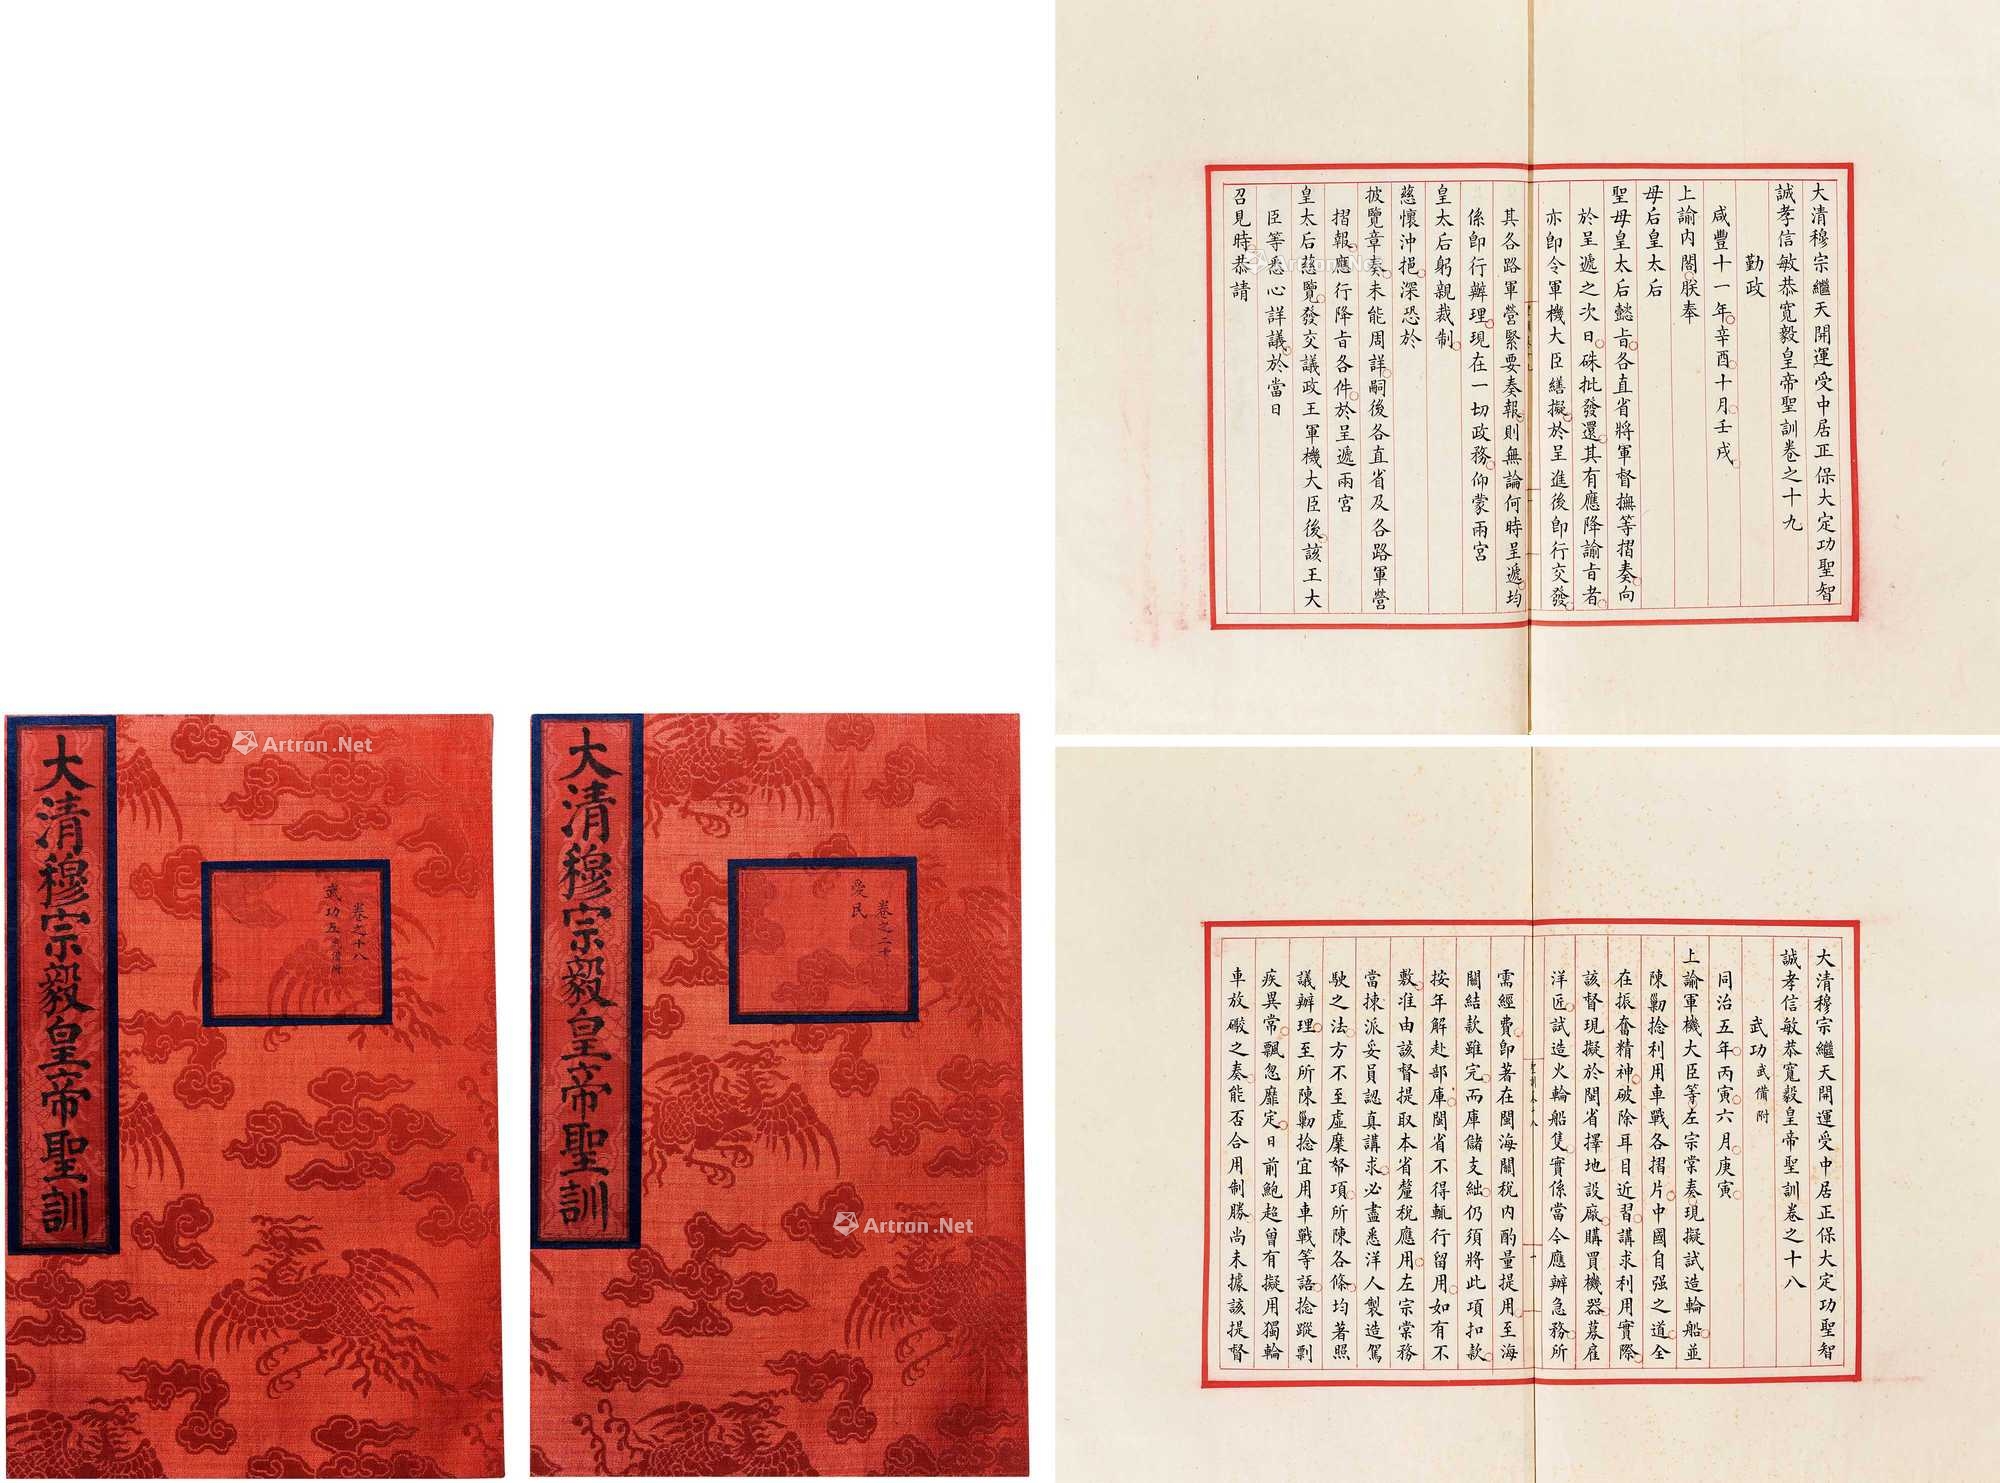 大清穆宗毅皇帝聖訓
卷之十八
武功五武備附
大清穆宗毅皇帝聖訓
卷之二十
愛民
Artron.Net
Artron.Net
大清穆宗繼天開運受中居正保大定功聖智
誠孝信敏恭寬毅皇帝聖訓卷之十九
勤政
咸豐十一年辛酉十月壬戌
上諭內閣朕奉
母后皇太后
聖母皇太后懿旨各直省將軍督撫等摺奏向
於呈遞之次日硃批發還其有應降諭旨者
亦即令軍機大臣繕擬於呈進後即行交發
其各路軍營緊要奏報則無論何時呈遞均
係即行辦理現在一切政務仰蒙兩宮
皇太后躬親裁制
慈懷沖挹深恐於
披覽章奏未能周詳嗣後各直省及各路軍營
摺報應行降旨各件於呈遞兩宮
皇太后慈覽發交議政王軍機大臣後該王大
臣等悉心詳議於當日
召見時恭請
Artron.Net
大清穆宗繼天開運受中居正保大定功聖智
誠孝信敏恭寬毅皇帝聖訓卷之十八
武功武備附
同治五年丙寅六月庚寅
上諭軍機大臣等左宗棠奏現擬試造輪船並
陳勦捻利用車戰各摺片中國自强之道全
在振奮精神破除耳目近習講求利用實際
該督現擬於閩省擇地設廠購買機器募雇
洋匠試造火輪船隻實係當今應辦急務所
需經費即著在閩海關稅內酌量提用至海
關結款雖完而庫儲支絀仍須將此項扣款
按年解赴部庫閩省不得輒行留用如有不
敷准由該督提取本省釐稅應用左宗棠務
當揀派妥員認真講求必盡悉洋人製造駕
駛之法方不至虛糜帑項所陳各條均著照
議辦理至所陳勦捻宜用車戰等語捻蹤剽
疾異常飄忽靡定日前鮑超曾有擬用獨輪
車放礮之奏能否合用制勝尚未據該提督